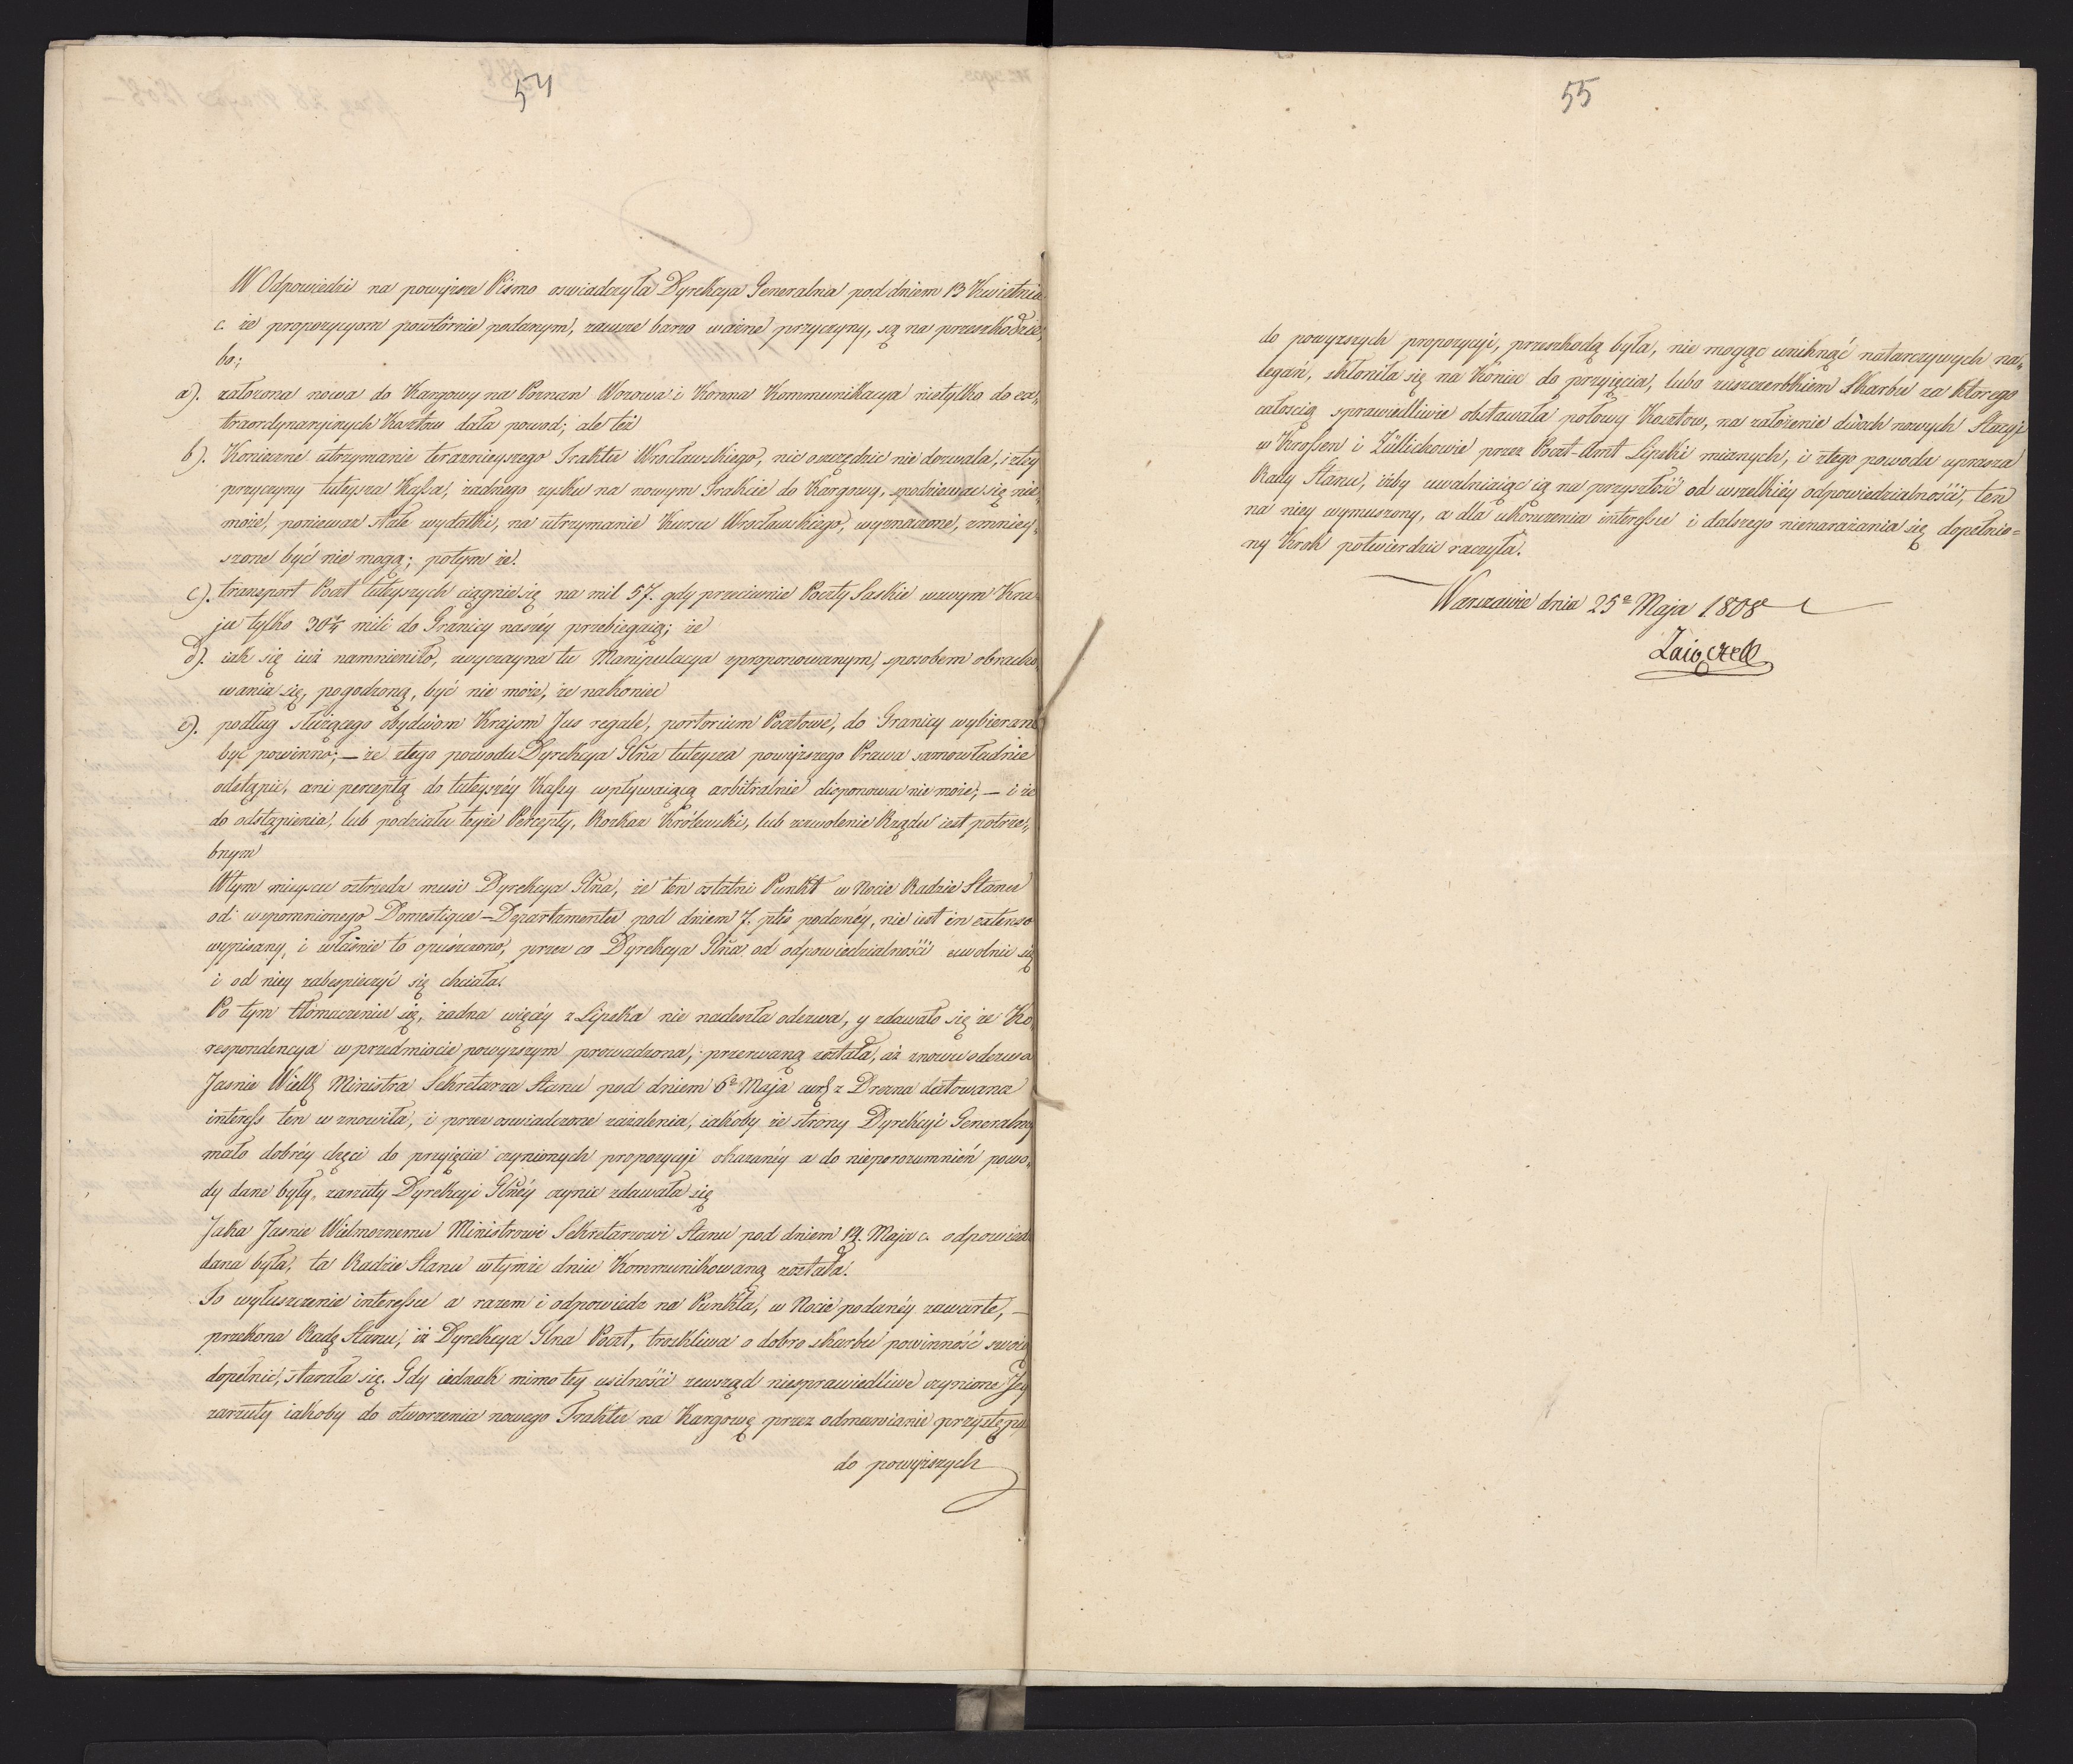 54
W Odpowiedzi na powyższe Pismo oswiadczyła Dyrekcya Generalna pod dniem 13 Kwietnia
c. że propozycyom powtórnie podanym, zawsze barzo ważne przyczyny, są na przeszkodzie,
bo:,
a). założona nowa do Kargowy na Poznan Wozowa i Konna Kommunikacya nietylko do ex„
traordynaryinych Kosztow dała powod; ale też
b). Konieczne utrzymanie teraznieyszego Traktu Wrocławskiego, nic oszczędzic nie dozwala, i z tey
przyczyny tuteysza Kassa, żadnego zysku na nowym Trakcie do Kargowy, spodziewac się nie„
może, poniewaz stałe wydatki, na utrzymanie Kursu Wrocławskiego, wyznaczone, zmniey„
szone być nie mogą; potym że.
c). transport Poczt tuteyszych ciągnie się na mil 57. gdy przeciwnie Poczty Saskie w swym Kra
ju tylko 30¾ mili do Granicy naszéy przebiegaią; że
d). iak się iuż namnieniło, zwyczayna tu Manipulacya z proponowanym sposobem obracho
wania się, pogodzoną, być nie może, że nakoniec
e). podług służącego obydwom Krajom Jus regale, portorium Pocztowe, do Granicy wybierane
być powinno; — że z tego powodu Dyrekcya Glna tuteysza powyższego Prawa samowładnie
odstąpic, ani perceptą do tuteyszéy Kassy wpływaiącą arbitralnie disponowac nie może, — i że
do odstąpienia, lub podziału teyże Percepty, Rozkaz Królewski, lub zezwolenie Rządu iest potrze„
bnym
W tym mieyscu ostrzedz musi Dyrekcya Glna, że ten ostatni Punkt w Nocie Radzie Stanu
od wspomnionego Domestique-Departamentu pod dniem 7. ptis podanéy, nie iest in extenso
wypisany, i właśnie to opuszczono, przez co Dyrekcya Glna od odpowiedzialności uwolnic się
i od niey zabespieczyć się chciała.
Po tym tłómaczeniu się, żadna więcéy z Lipska nie nadeszła odezwa, y zdawało się że Ko„
respondencya w przedmiocie powyzszym prowadzona, przerwaną została, aż znowu odezwa
Jasnie Wiellg Ministra Sekretarza Stanu pod dniem 6ᵉ Maja curᵗ z Drezna datowana
interess ten wznowiła, i przez oswiadczone zażalenia, iakoby ze strony Dyrekcyi Generalnéy
mało dobréy chęci do przyięcia czynionych propozycyi okazanéy a do nieporozumnień powo„
dy dane były, zarzuty Dyrekcyi Glnéy czynic zdawała się
Jaka Jasnie Wielmoznemu Ministrowi Sekretarzowi Stanu pod dniem 14. Maja c. odpowiedz
dana była, ta Radzie Stanu w tymże dniu Kommunikowaną została.
To wyłuszczenie interessu a razem i odpowiedz na Punkta, w Nocie podanéy zawarte, —
przekona Radę Stanu, iż Dyrekcya Glna Poczt, troskliwa o dobro skarbu powinność swoię
dopełnić, starała się. Gdy iednak mimo tey usilności zewsząd niesprawiedliwe czynione Jey
zarzuty iakoby do otworzenia nowego Traktu na Kargowę przez odmawianie przystępu
do powyższych
55
do powyzszych propozycyi, przeszkodą była, nie mogąc uniknąć natarczywych na„
legań, skłoniła się na koniec do przyięcia, lubo z uszczerbkiem Skarbu za którego
całoscią sprawiedliwie obstawała połowy Kosztow, na założenie dwóch nowych Stacyi
w Krossen i Züllichowie przez Poczt-Amt Lipski mianych, iż z tego powodu uprasza
Rady Stanu, iżby uwalniaiąc ią na przyszłość od wszelkiéy odpowiedzialności, ten
na niey wymuszony, a dla ukonczenia interessu i dalszego nienarażania się dopełnio=
ny Krok potwierdzic raczyła.
Warszawie dnia 25ᵉ Maja 1808
Zaiączek